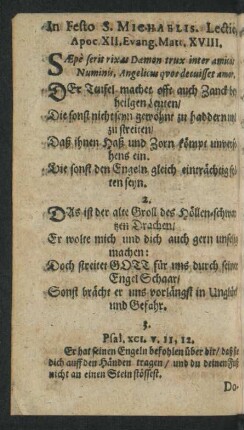 In Festo S. MICHAELIS. Lectio
Apoc. XII. Evang. Matt. XVIII.
SÆpè serit rixas Dæmon trux inter amicos
Numinis, Angelicus qvos decuisset amor.
DEr Teufel machet offt auch Zanck bey
heilgen Leuten/
Die sonst nicht seyn gewohnt zu haddern und
zu streiten/
Daß ihnen Haß und Zorn kömpt unverse-
hens ein.
Die sonst den Engeln gleich einträchtig solten
seyn.
2.
DAs ist der alte Groll des Höllen-schwar-
tzen Drachen/
Er wolte mich und dich auch gern unselig
machen:
Doch streitet GOTT für uns durch seiner
Engel Schaar/
Sonst brächt er uns vorlängst in Unglück
und Gefahr.
3.
Psal. XCI. v. 11, 12.
Er hat seinen Engeln befohlen über dir/ daß sie
dich auff den Händen tragen/ und du deinen Fuß
nicht an einen Stein stössest.
Do-